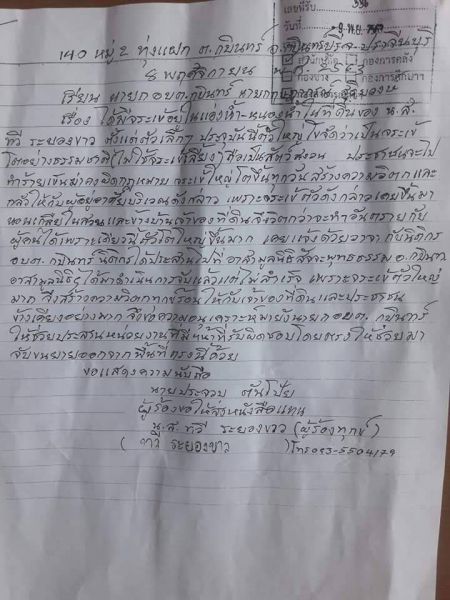 เลขที่รับ 336
วันที่ 9 พ.ย. 2560
กองคลัง
กองช่าง
140 หมู่ 2 ทุ่งแฝก ต.กบินทร์ อ.กบินทร์บุรี จ.ปราจีนบุรี
8 พฤศจิกายน
เรียน นายก อบต.กบินทร์
เรื่อง ได้มีจระเข้อยู่ในแอ่งน้ำ-หนองน้ำในที่ดินของ น.ส.
ทวี ระยองขาว ตั้งแต่ตัวเล็กๆ ปัจจุบันนี้ตัวใหญ่
โตอย่างธรรมชาติ (ไม่ใช่จระเข้เลี้ยง) ถือเป็นสัตว์สงวน ประชาชนจะไป
ทำร้ายเข่นฆ่าคงผิดกฎหมาย จระเข้ใหญ่โตขึ้นทุกวันสร้างความวิตกและ
กลัวให้กับผู้อยู่อาศัยบริเวณดังกล่าว เพราะจระเข้ตัวดังกล่าวเคยขึ้นมา
นอนเกลือกในสวนและข้างบ้านเจ้าของที่ดินจึงวิตกว่าจะทำอันตรายกับ
ผู้คนได้เพราะเดี๋ยวนี้ตัวโตใหญ่ขึ้นมาก เคยแจ้งด้วยวาจากับนิติกร
อบต. กบินทร์ นิติกรได้ประสานไปที่อาสามูลนิธิสัจจะพุทธธรรม อ.กบินทร์
อาสามูลนิธิฯ ได้มาดำเนินการจับแล้วแต่ไม่สำเร็จ เพราะจระเข้ตัวใหญ่
มาก สิ่งสร้างความวิตกทุกข์ร้อนให้กับเจ้าของที่ดินและประชาชน
ข้างเคียงอย่างมาก จึงขอความอนุเคราะห์มายังนายก อบต. กบินทร์
ให้ช่วยประสานหน่วยงานที่มีหน้าที่รับผิดชอบโดยตรงให้ช่วยมา
จับขนย้ายออกจากพื้นที่ตรงนี้ด้วย
ขอแสดงความนับถือ
นายประจวบ ตันโปย
ผู้ร้องขอให้ส่งหนังสือแทน
น.ส. ทวี ระยองขาว (ผู้ร้องทุกข์)
(ทวี ระยองขาว) โทร 083-5504179